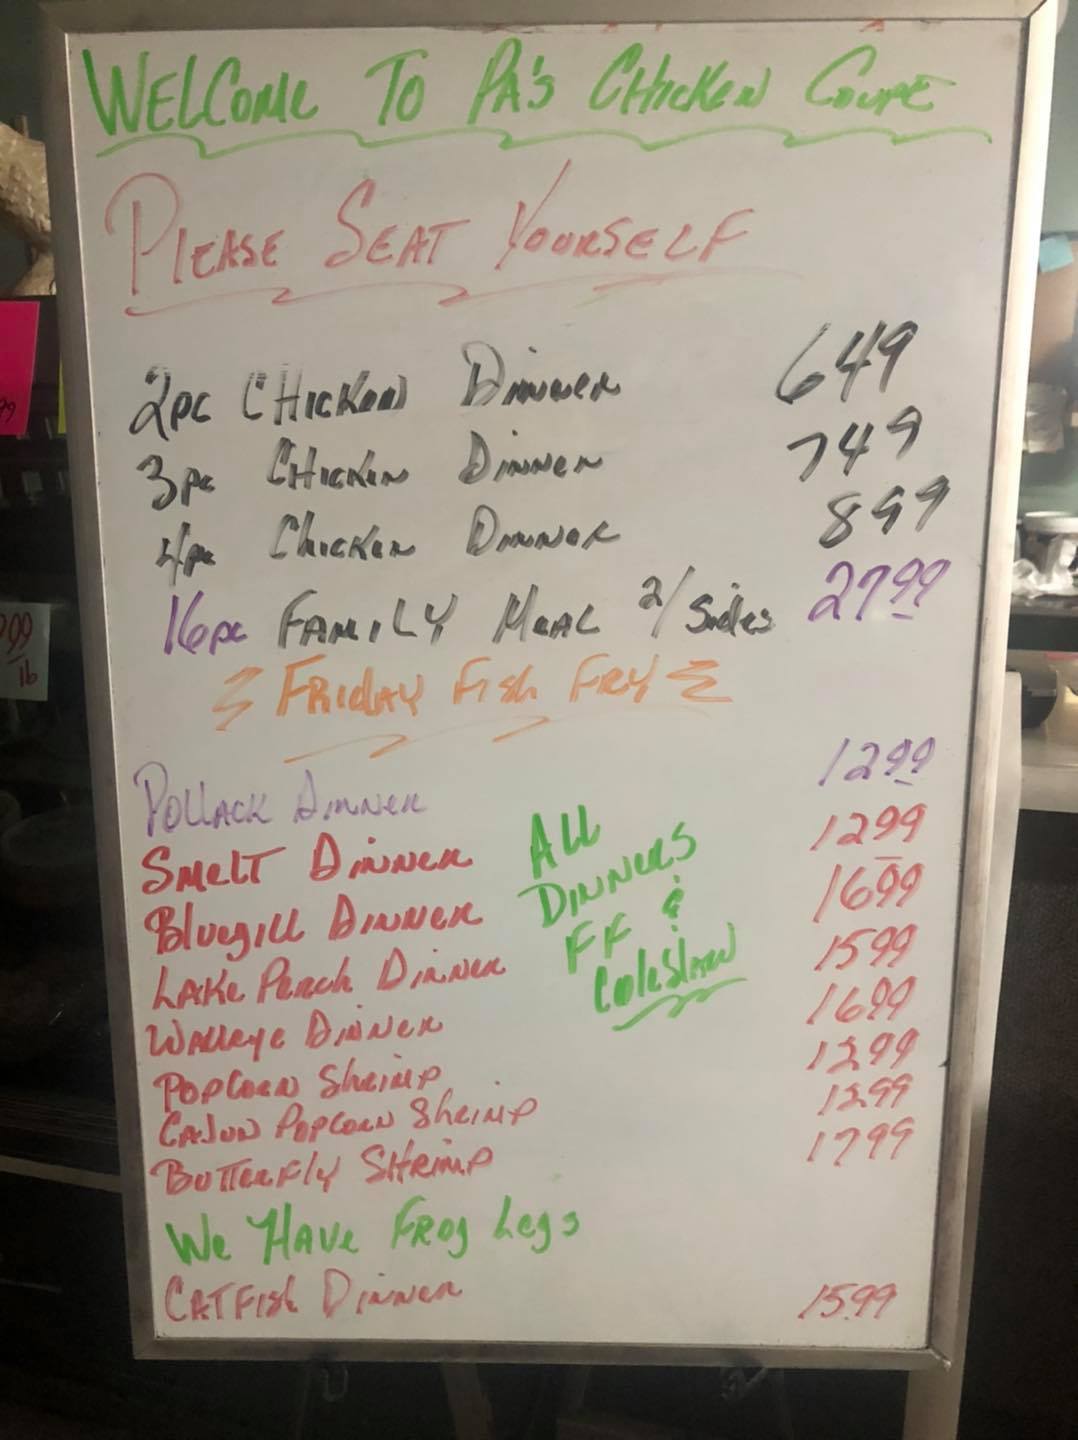 WELCOME TO PA'S CHICKEN COUPE
PLEASE SEAT YOURSELF
2pc CHICKEN DINNER 649
3pc CHICKEN DINNER 749
4pc CHICKEN DINNER 899
16pc FAMILY MEAL 2/Sides 2799
FRIDAY FISH FRY
POLLACK DINNER 1299
SMELT DINNER 1299
Bluegill DINNER 1699
LAKE Perch DINNER 1599
WALLEYE DINNER 1699
POPCORN Shrimp 1299
CAJUN POPCORN Shrimp 1299
BUTTERFLY SHRIMP 1799
ALL
DINNERS
FF &
ColeSlaw
We HAVE FROG Legs
CATFISH DINNER 15.99
99
lb